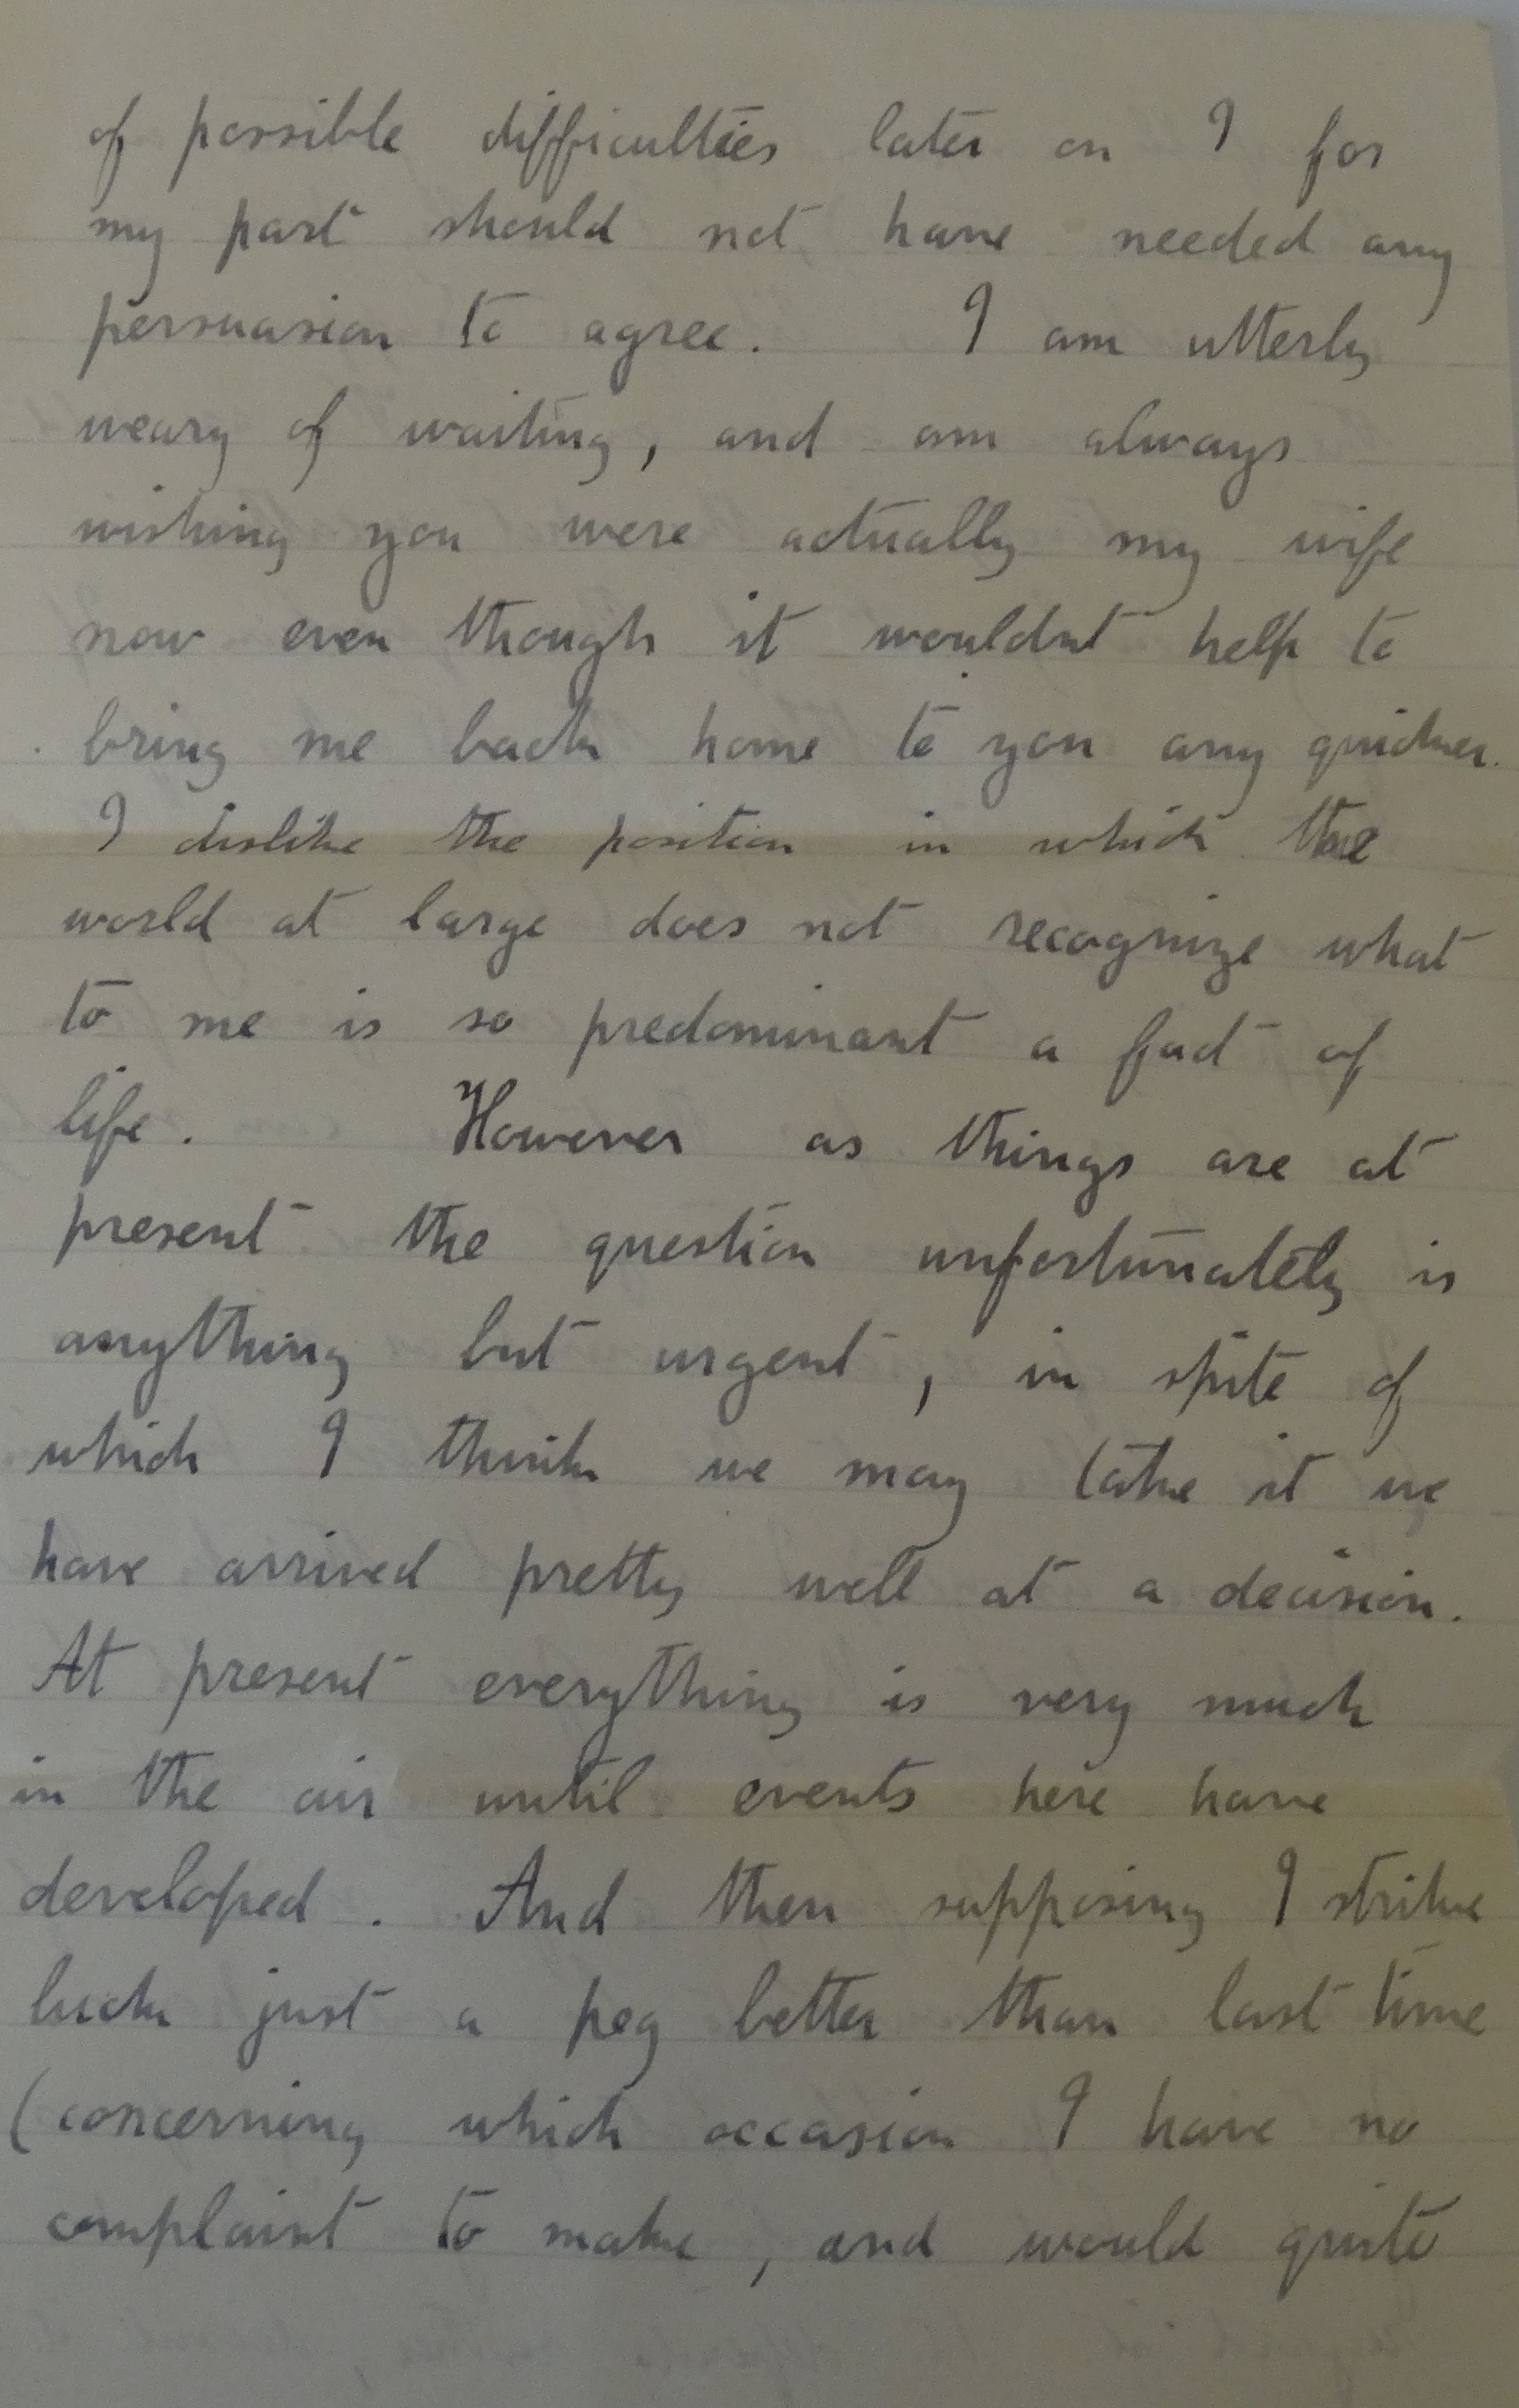 of possible difficulties later on I for
my part should not have needed any
persuasion to agree. I am utterly
weary of waiting, and am always
wishing you were actually my wife
now even though it wouldnt help to
bring me back home to you any quicker.
I dislike the position in which the
world at large does not recognize what
to me is so predominant a fact of
life. However as things are at
present the question unfortunately is
anything but urgent, in spite of
which I think we may take it we
have arrived pretty well at a decision.
At present everything is very much
in the air until events here have
developed. And then supposing I strike
luck just a peg better than last time
(concerning which occasion I have no
complaint to make, and would quite